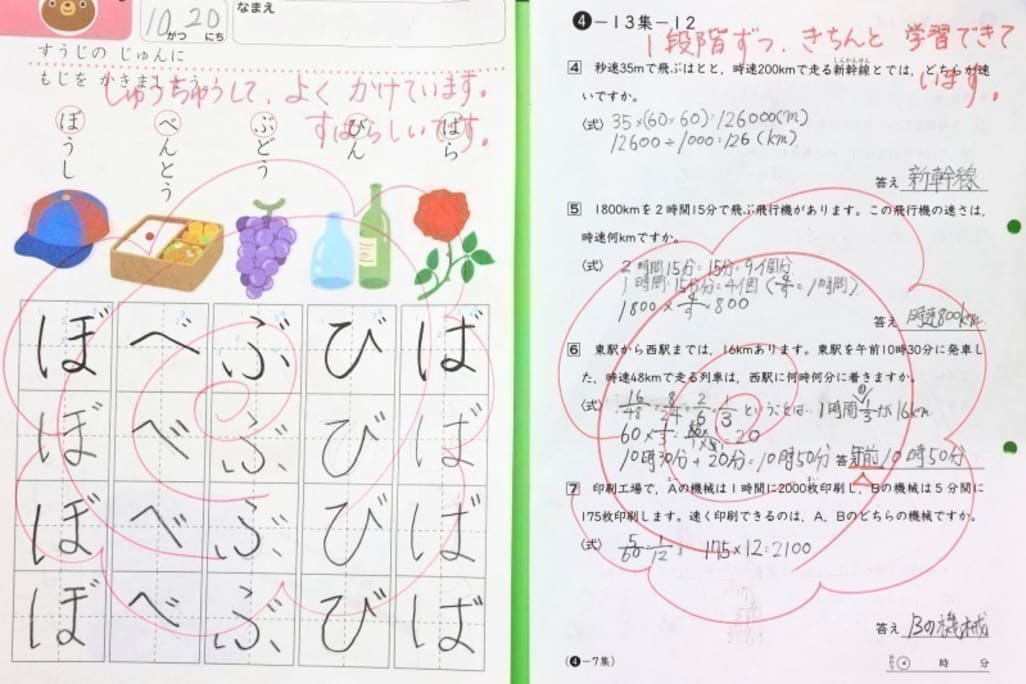 10がつ 20にち
なまえ
すうじの じゅんに
もじを かきましょう
しゅうちゅうして、よく かけています。
すばらしいです。
ばら
びん
ぶどう
べんとう
ぼうし
ば び ぶ べ ぼ
ば び ぶ べ ぼ
ば び ぶ べ ぼ
ば び ぶ べ ぼ
❹-13集-12
1段階ずつ、きちんと 学習できて
います。
4 秒速35mで飛ぶはとと、時速200kmで走る新幹線とでは、どちらが速
しんかんせん
いですか。
(式) 35×(60×60)=126000(m)
12600÷1000=126(km)
答え 新幹線
5 1800kmを2時間15分で飛ぶ飛行機があります。この飛行機の速さは、
時速何kmですか。
(式) 2時間15分÷15分=9個分
1時間÷15分=4個(4/4=1時間)
1800×4/9=800
答え 時速800km
6 東駅から西駅までは、16kmあります。東駅を午前10時30分に発車し
た、時速48kmで走る列車は、西駅に何時何分に着きますか。
(式) 16/48=8/24=2/6=1/3 ということは…1時間の1/3が16km
=20
10時30分+20分=10時50分
答え 午前10時50分
7 印刷工場で、Aの機械は1時間に2000枚印刷し、Bの機械は5分間に
175枚印刷します。速く印刷できるのは、A、Bのどちらの機械ですか。
(式) 5/60=1/12 175×12=2100
答え Bの機械
(❹-7集)
時 分